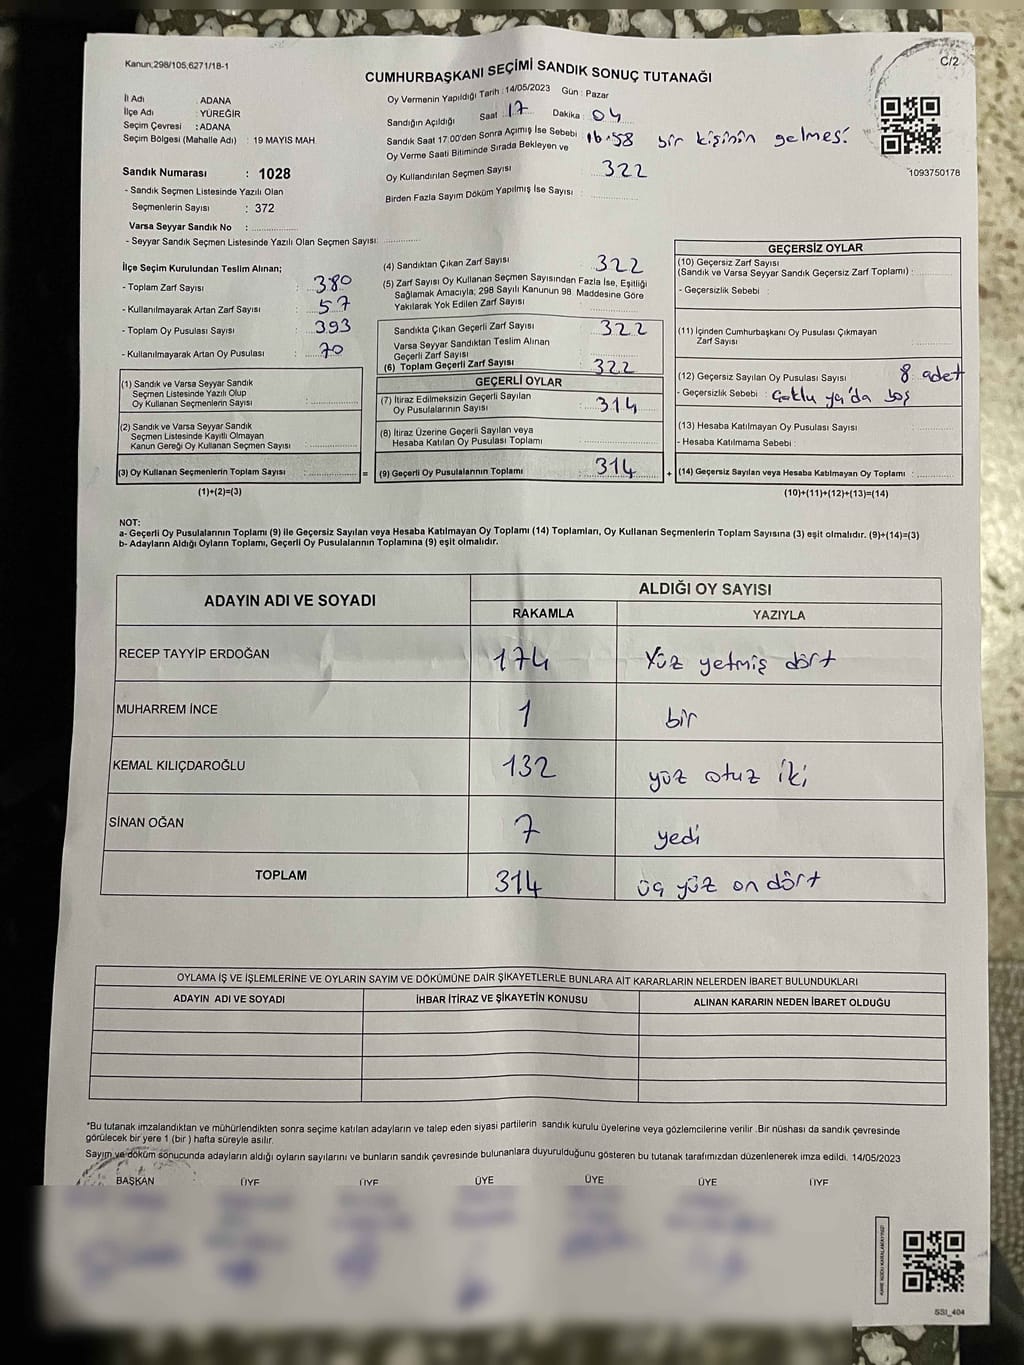 Kanun;298/105,6271/18-1
C/2
CUMHURBAŞKANI SEÇİMİ SANDIK SONUÇ TUTANAĞI
İl Adı : ADANA
İlçe Adı : YÜREĞİR
Seçim Çevresi : ADANA
Seçim Bölgesi (Mahalle Adı) : 19 MAYIS MAH
Oy Vermenin Yapıldığı Tarih : 14/05/2023 Gün : Pazar
Sandığın Açıldığı Saat : 17 Dakika : 04
Sandık Saat 17:00'den Sonra Açılmış İse Sebebi : 16:58 bir kişinin gelmesi
Oy Verme Saati Bitiminde Sırada Bekleyen ve
Oy Kullandırılan Seçmen Sayısı : 322
Birden Fazla Sayım Döküm Yapılmış İse Sayısı :
1093750178
Sandık Numarası : 1028
- Sandık Seçmen Listesinde Yazılı Olan
Seçmenlerin Sayısı : 372
Varsa Seyyar Sandık No :
- Seyyar Sandık Seçmen Listesinde Yazılı Olan Seçmen Sayısı:
İlçe Seçim Kurulundan Teslim Alınan;
- Toplam Zarf Sayısı : 380
- Kullanılmayarak Artan Zarf Sayısı : 57
- Toplam Oy Pusulası Sayısı : 393
- Kullanılmayarak Artan Oy Pusulası : 70
(1) Sandık ve Varsa Seyyar Sandık
Seçmen Listesinde Yazılı Olup
Oy Kullanan Seçmenlerin Sayısı :
(2) Sandık ve Varsa Seyyar Sandık
Seçmen Listesinde Kayıtlı Olmayan
Kanun Gereği Oy Kullanan Seçmen Sayısı :
(3) Oy Kullanan Seçmenlerin Toplam Sayısı : =
(1)+(2)=(3)
(4) Sandıktan Çıkan Zarf Sayısı : 322
(5) Zarf Sayısı Oy Kullanan Seçmen Sayısından Fazla İse, Eşitliği
Sağlamak Amacıyla; 298 Sayılı Kanunun 98. Maddesine Göre
Yakılarak Yok Edilen Zarf Sayısı :
Sandıkta Çıkan Geçerli Zarf Sayısı : 322
Varsa Seyyar Sandıktan Teslim Alınan
Geçerli Zarf Sayısı :
(6) Toplam Geçerli Zarf Sayısı : 322
GEÇERLİ OYLAR
(7) İtiraz Edilmeksizin Geçerli Sayılan
Oy Pusulalarının Sayısı : 314
(8) İtiraz Üzerine Geçerli Sayılan veya
Hesaba Katılan Oy Pusulası Toplamı :
(9) Geçerli Oy Pusulalarının Toplamı : 314 +
GEÇERSİZ OYLAR
(10) Geçersiz Zarf Sayısı
(Sandık ve Varsa Seyyar Sandık Geçersiz Zarf Toplamı) :
- Geçersizlik Sebebi :
(11) İçinden Cumhurbaşkanı Oy Pusulası Çıkmayan
Zarf Sayısı :
(12) Geçersiz Sayılan Oy Pusulası Sayısı : 8 adet
- Geçersizlik Sebebi : Çoklu ya'da boş
(13) Hesaba Katılmayan Oy Pusulası Sayısı :
- Hesaba Katılmama Sebebi :
(14) Geçersiz Sayılan veya Hesaba Katılmayan Oy Toplamı :
(10)+(11)+(12)+(13)=(14)
NOT:
a- Geçerli Oy Pusulalarının Toplamı (9) ile Geçersiz Sayılan veya Hesaba Katılmayan Oy Toplamı (14) Toplamları, Oy Kullanan Seçmenlerin Toplam Sayısına (3) eşit olmalıdır. (9)+(14)=(3)
b- Adayların Aldığı Oyların Toplamı, Geçerli Oy Pusulalarının Toplamına (9) eşit olmalıdır.
ADAYIN ADI VE SOYADI
ALDIĞI OY SAYISI
RAKAMLA YAZIYLA
RECEP TAYYİP ERDOĞAN 174 Yüz yetmiş dört
MUHARREM İNCE 1 bir
KEMAL KILIÇDAROĞLU 132 yüz otuz iki
SİNAN OĞAN 7 yedi
TOPLAM 314 üç yüz on dört
OYLAMA İŞ VE İŞLEMLERİNE VE OYLARIN SAYIM VE DÖKÜMÜNE DAİR ŞİKAYETLERLE BUNLARA AİT KARARLARIN NELERDEN İBARET BULUNDUKLARI
ADAYIN ADI VE SOYADI İHBAR İTİRAZ VE ŞİKAYETİN KONUSU ALINAN KARARIN NEDEN İBARET OLDUĞU
*Bu tutanak imzalandıktan ve mühürlendikten sonra seçime katılan adayların ve talep eden siyasi partilerin sandık kurulu üyelerine veya gözlemcilerine verilir .Bir nüshası da sandık çevresinde
görülecek bir yere 1 (bir ) hafta süreyle asılır.
Sayım ve döküm sonucunda adayların aldığı oyların sayılarını ve bunların sandık çevresinde bulunanlara duyurulduğunu gösteren bu tutanak tarafımızdan düzenlenerek imza edildi. 14/05/2023
BAŞKAN ÜYE ÜYE ÜYE ÜYE ÜYE ÜYE
SSI_404